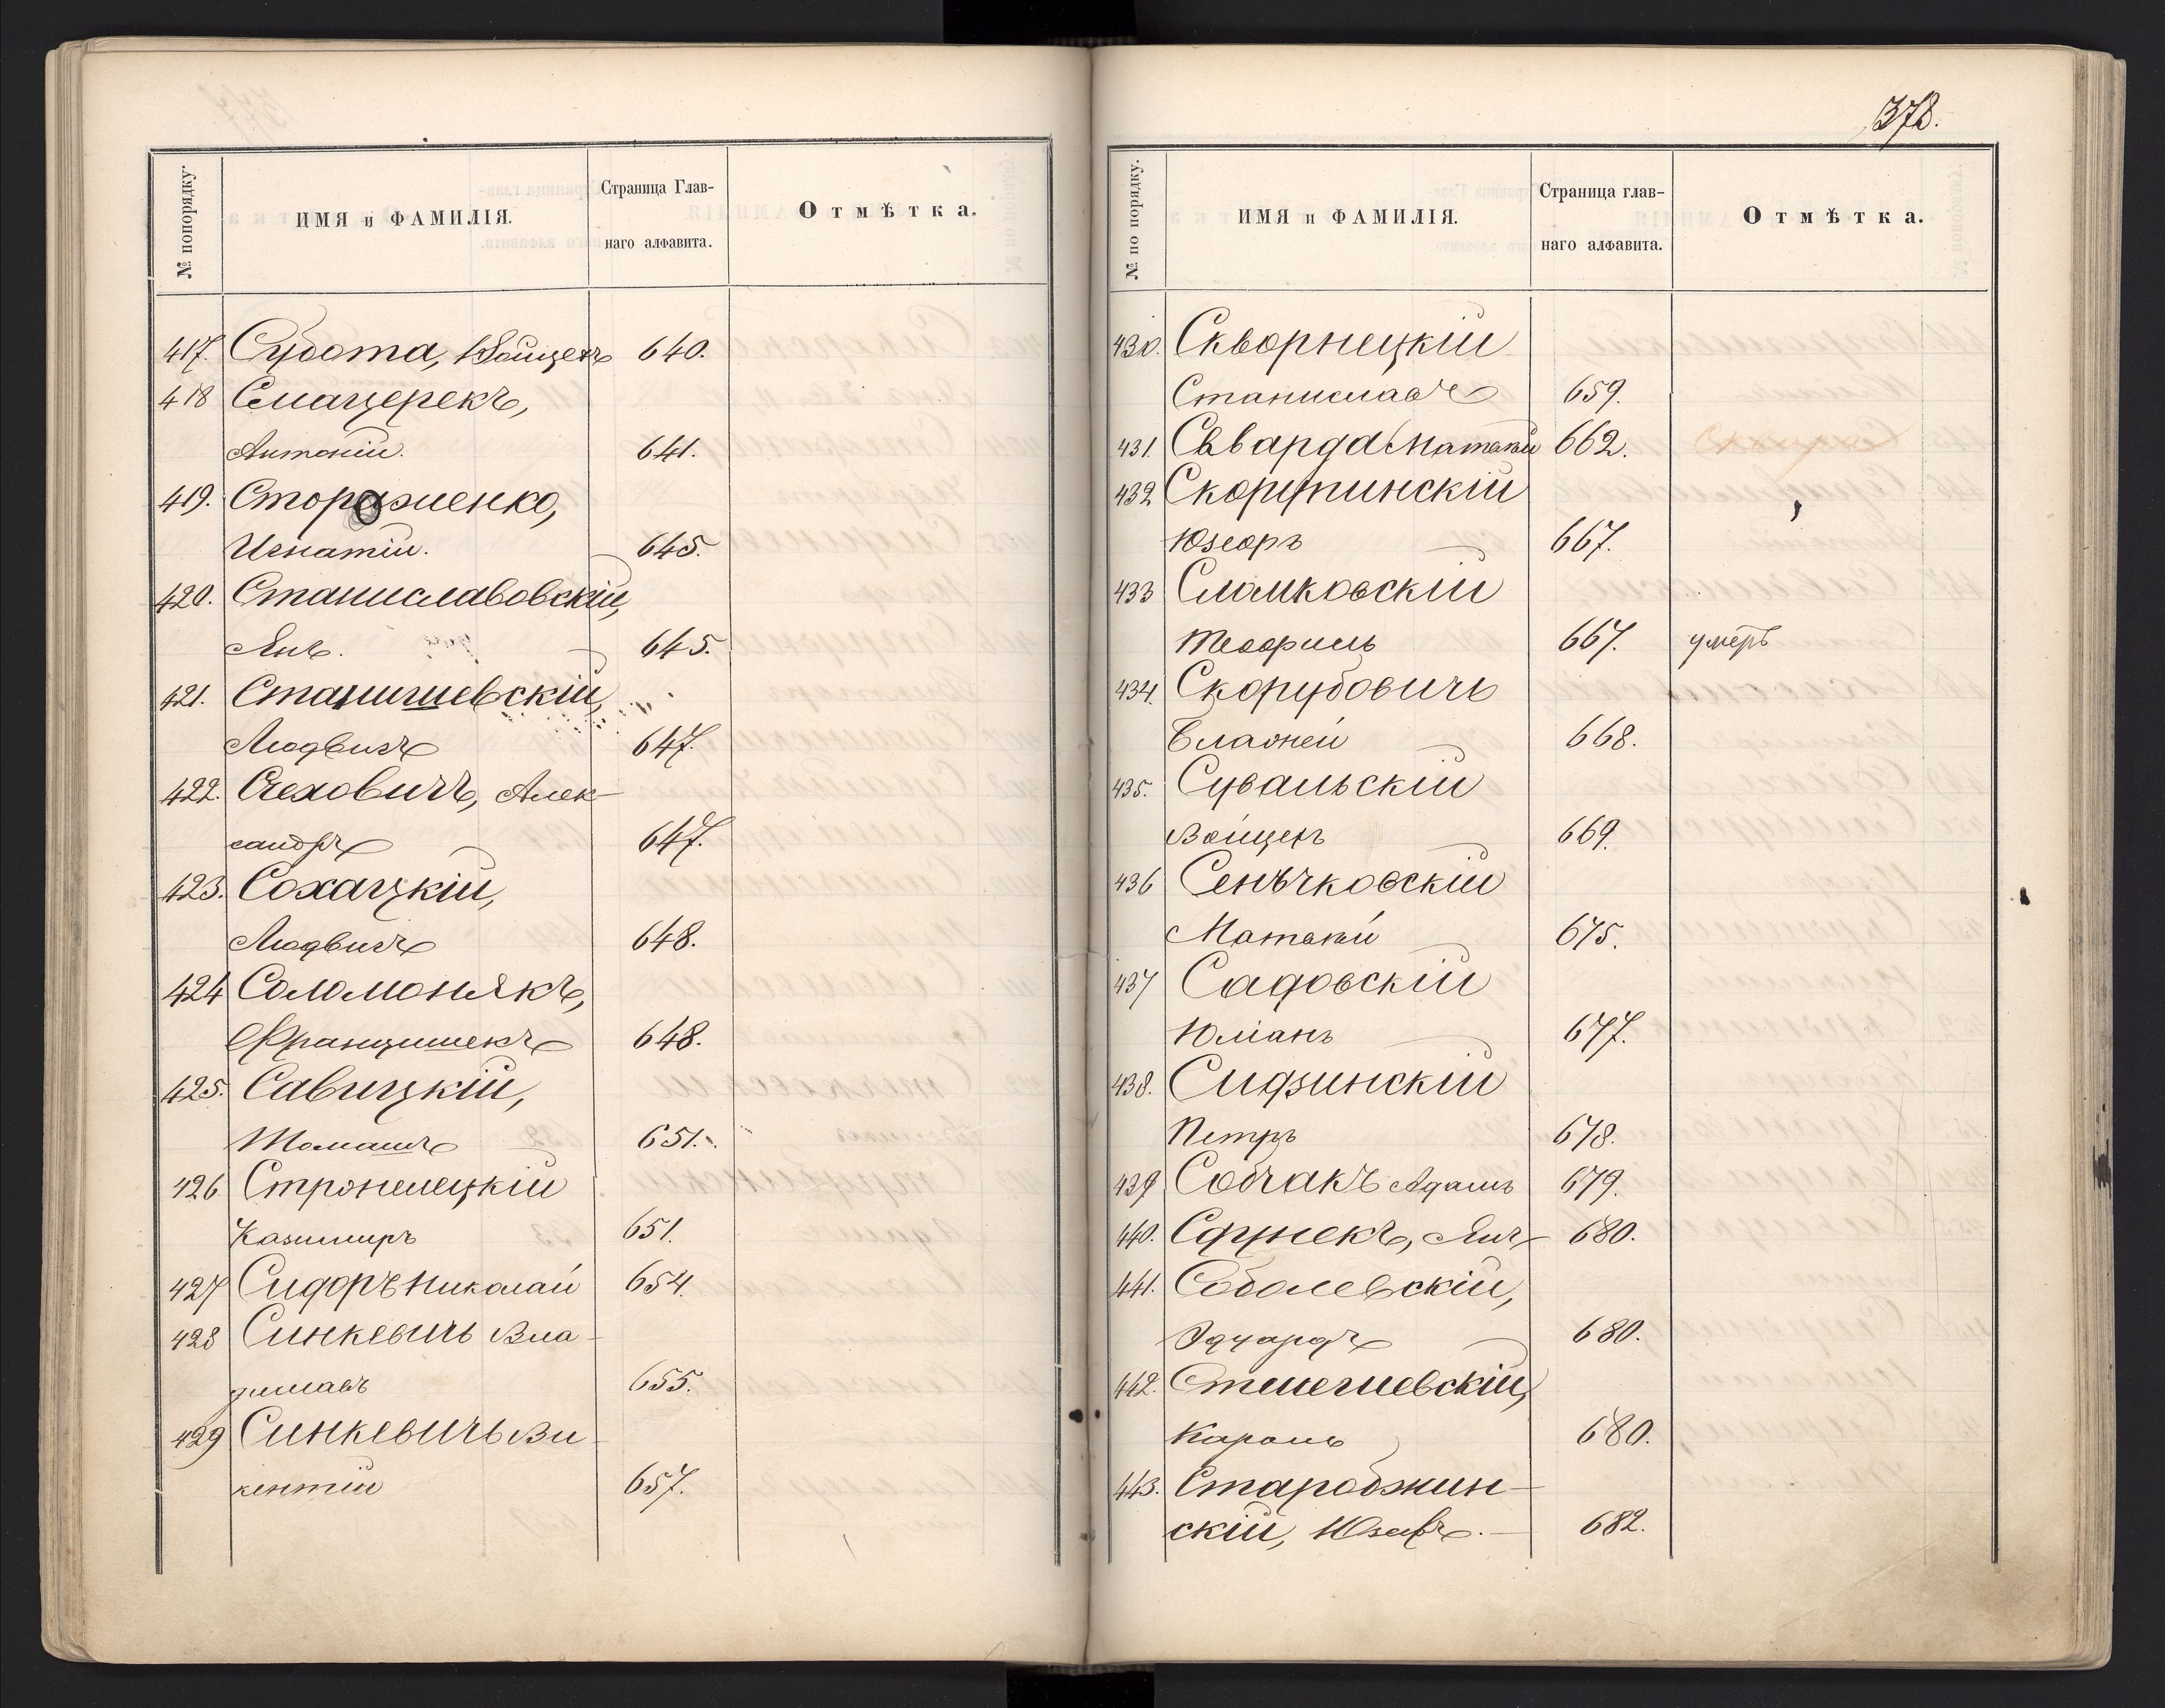 № попорядку.
ИМЯ и ФАМИЛІЯ.
Страница Глав-
наго алфавита.
Отмѣтка.
417. Субота, Войцехъ 640.
418 Смацерекъ,
Антоній. 641.
419. Стораженко,
Игнатій. 645.
420. Станиславовскій,
Янъ. 645.
421. Станишевскій,
Людвигъ 647.
422. Чеховичъ, Алек-
сандръ 647.
423. Сохацкій,
Людвигъ 648.
424 Соломонякъ,
Францишекъ 648.
425. Савицкій,
Томашъ 651.
426 Стронелецкій
Казимиръ 651.
427 Сидоръ Николай 654.
428 Синкевичъ Вла-
диславъ 655.
429 Синкевичъ Ви-
кентій 657.
378.
№ по порядку.
ИМЯ и ФАМИЛІЯ.
Страница глав-
наго алфавита.
Отмѣтка.
430. Скворнецкій
Станиславъ 659.
431. Скварда Матвѣй 662. Сквара
432 Скорупинскій
Юзефъ 667.
433 Сломковскій
Теофиль 667. умеръ
434. Скорубовичъ
Блажей 668.
435. Сувальскій
Войцехъ 669.
436 Сенъчковскій
Матвѣй 675.
437 Садовскій
Юліанъ 677.
438. Сидзинскій
Петръ 678.
439 Собчакъ Адамъ 679.
440. Янъ 680.
441. Соболевскій,
Эдуардъ 680.
442. Стемпневскій,
Кароль 680.
443. Старобжин-
скій, Юзефъ. 682.